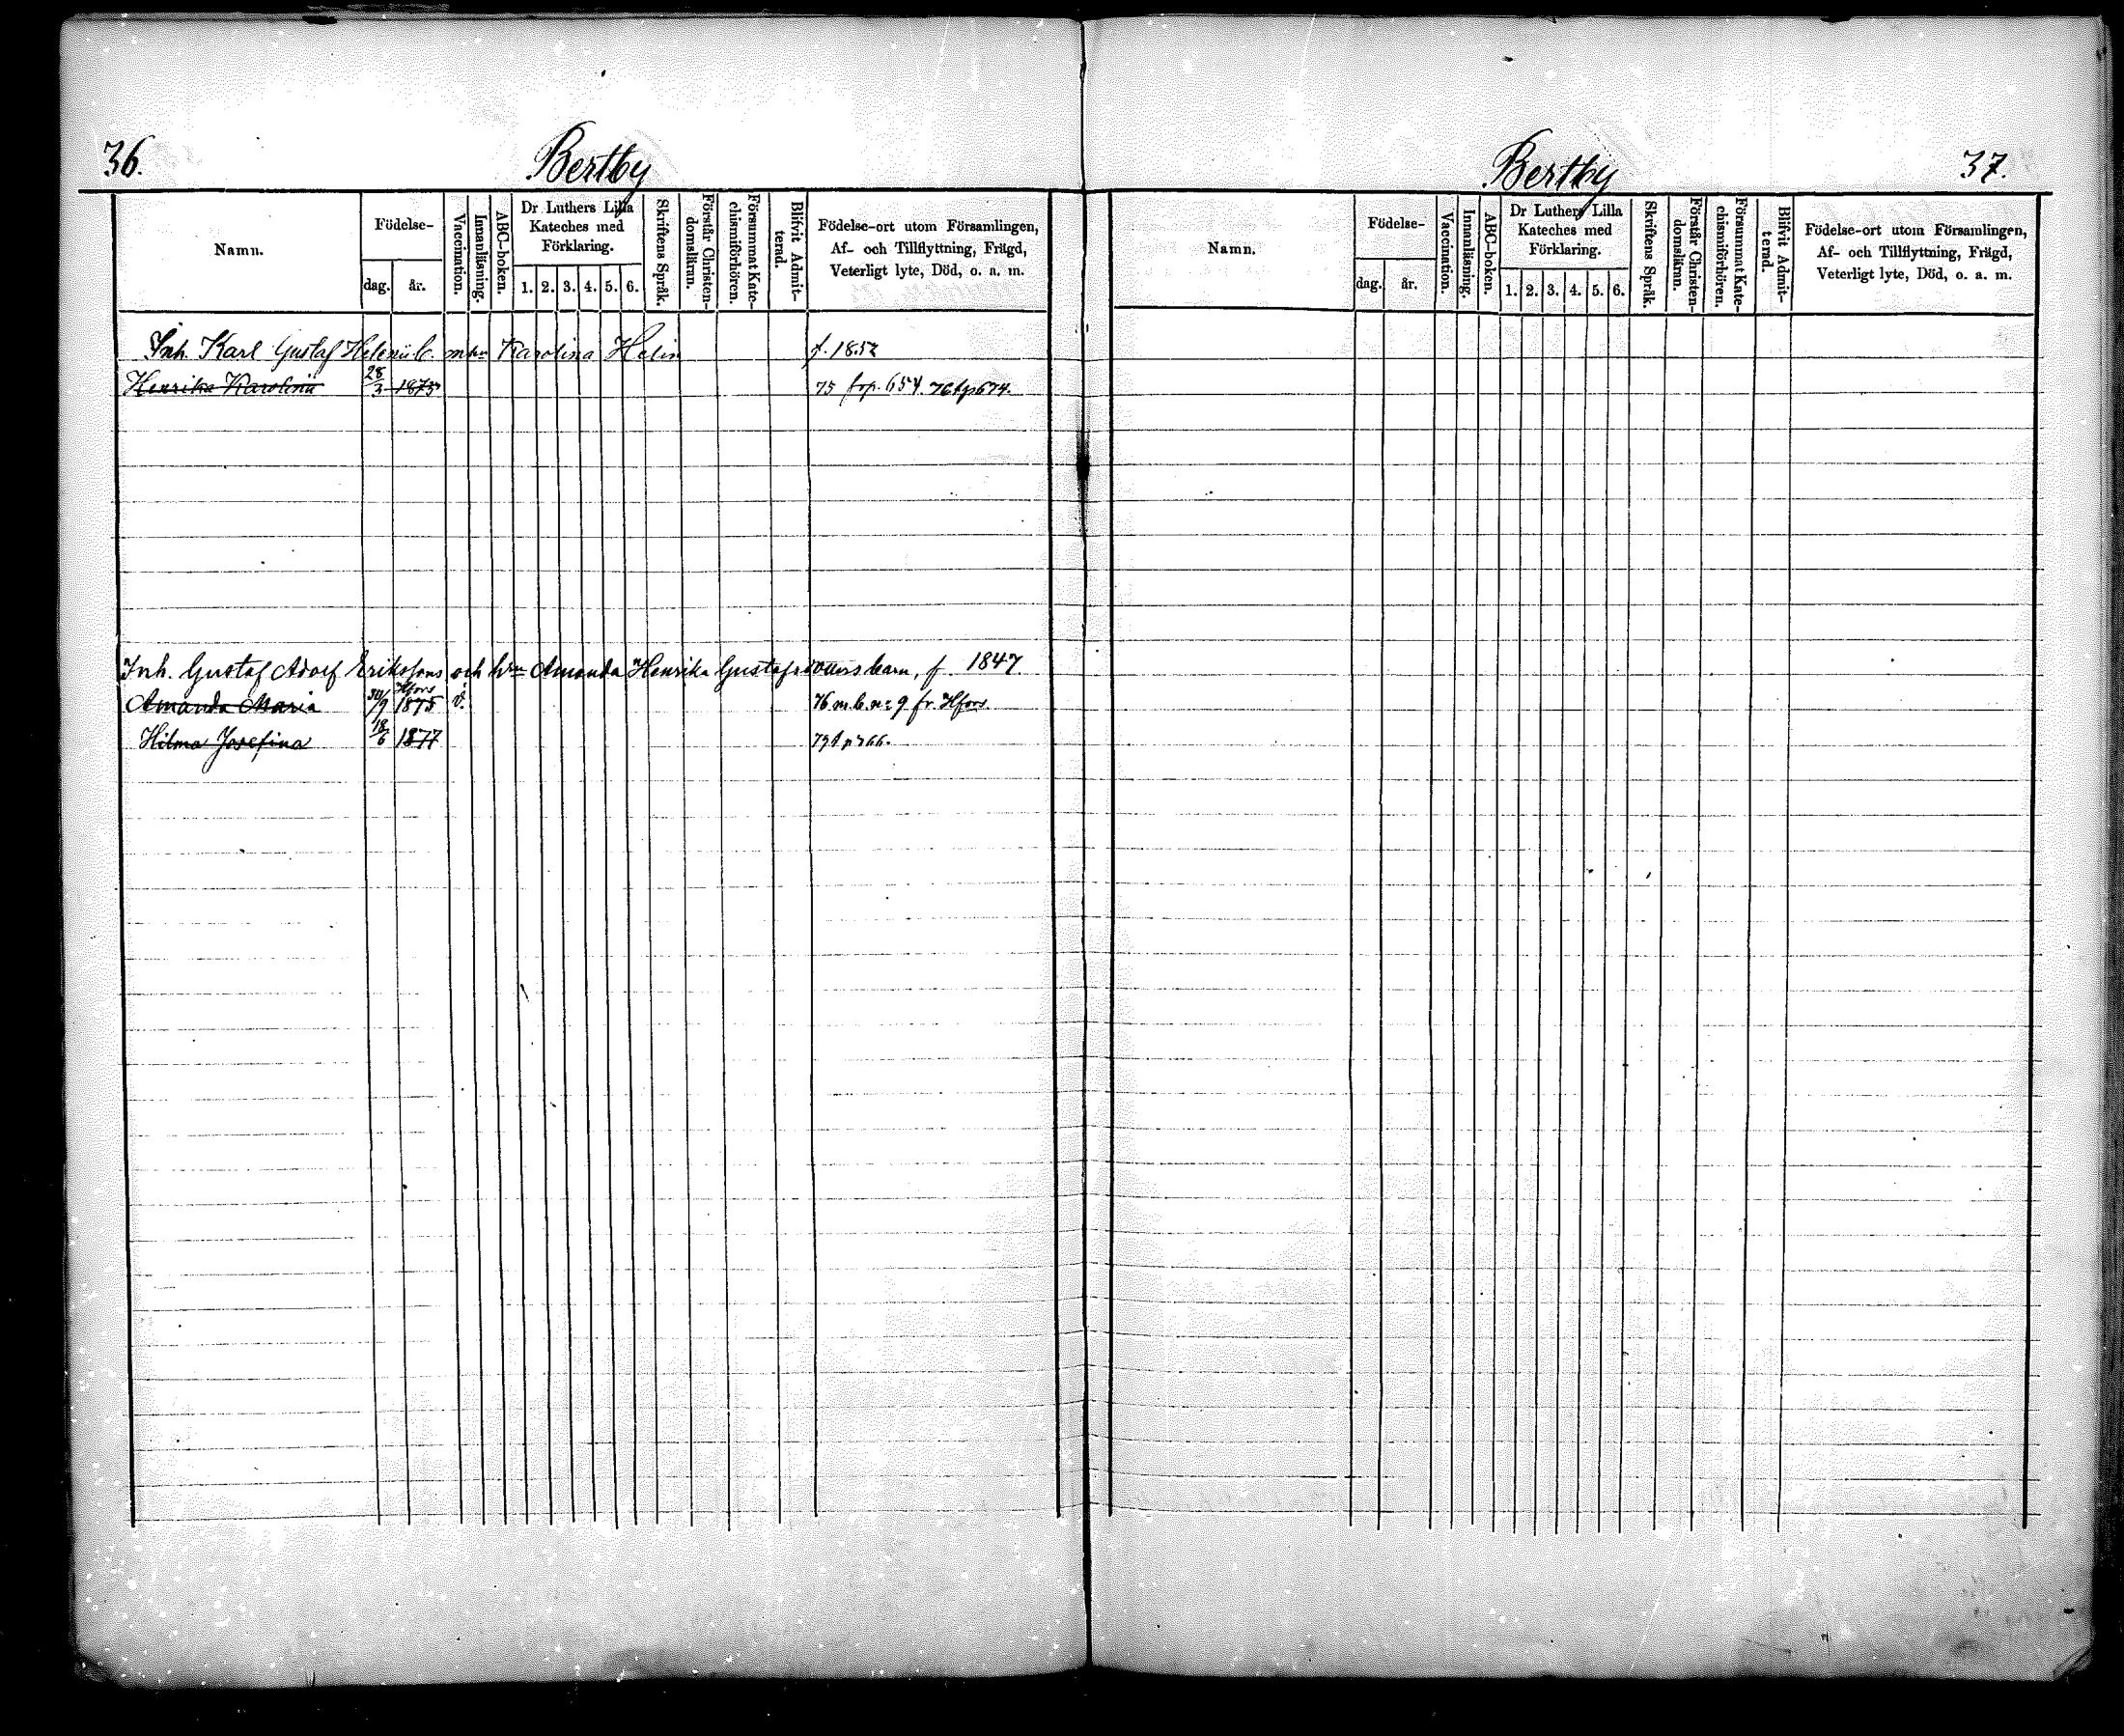 36.
Bertby
Namn.
Födelse-
dag.
år.
Vaccination.
Innanläsning.
ABC-boken.
Dr Luthers Lilla
Kateches med
Förklaring.
1. 2. 3. 4. 5. 6.
Skriftens Språk.
Förstår Christen-
domsläran.
Försummat Kate-
chismiförhören.
Blifvit Admit-
terad.
Födelse-ort utom Församlingen,
Af- och Tillflyttning, Frägd,
Veterligt lyte, Död, o. a. m.
Inh. Karl Gustaf Karolina Helin f. 1852
Henrika Karolina 28/3 1875 75 654. 76 674.
Inh. Gustaf Adolf Erikssons och hu Amanda Henrika Gustafsdotters barn, f. 1847.
Hfors
Amanda Maria 30/9 1875 v. 76 m.b. no 9 fr. Hfors.
Hilma Josefina 18/6 1877
Bertby
37.
Namn.
Födelse-
dag.
år.
Vaccination.
Innanläsning.
ABC-boken.
Dr Luthers Lilla
Kateches med
Förklaring.
1. 2. 3. 4. 5. 6.
Skriftens Språk.
Förstår Christen-
domsläran.
Försummat Kate-
chismiförhören.
Blifvit Admit-
terad.
Födelse-ort utom Församlingen,
Af- och Tillflyttning, Frägd,
Veterligt lyte, Död, o. a. m.